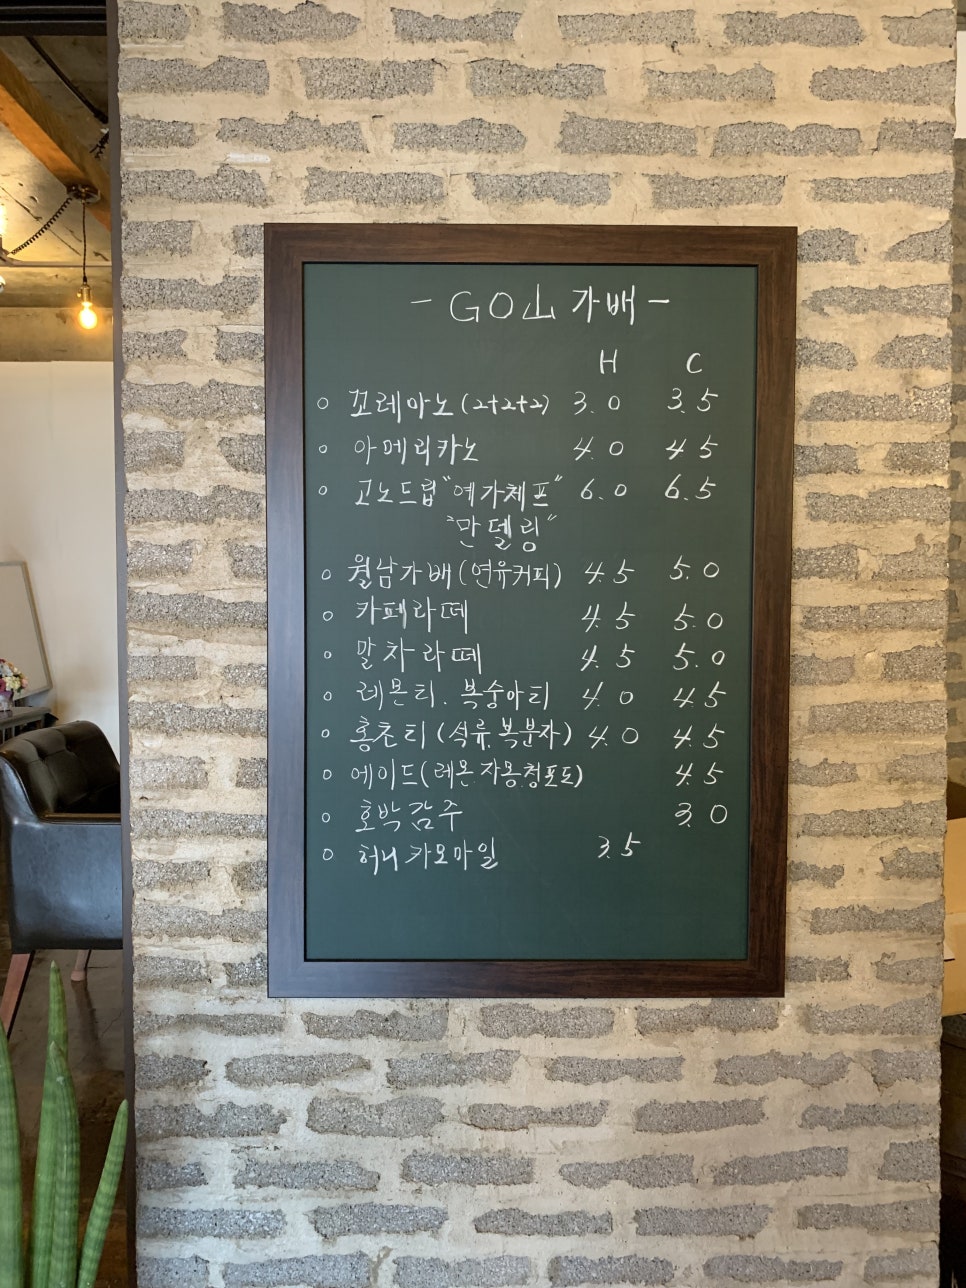 - GO山 가배 -
H C
○ 꼬레아노 (2+2+2) 3.0 3.5
○ 아메리카노 4.0 4.5
○ 고노드립 "예가체프" 6.0 6.5
"만델링"
○ 월남가배 (연유커피) 4.5 5.0
○ 카페라떼 4.5 5.0
○ 말차라떼 4.5 5.0
○ 레몬티. 복숭아티 4.0 4.5
○ 홍초티 (석류, 복분자) 4.0 4.5
○ 에이드 (레몬.자몽.청포도) 4.5
○ 호박감주 3.0
○ 허니카모마일 3.5